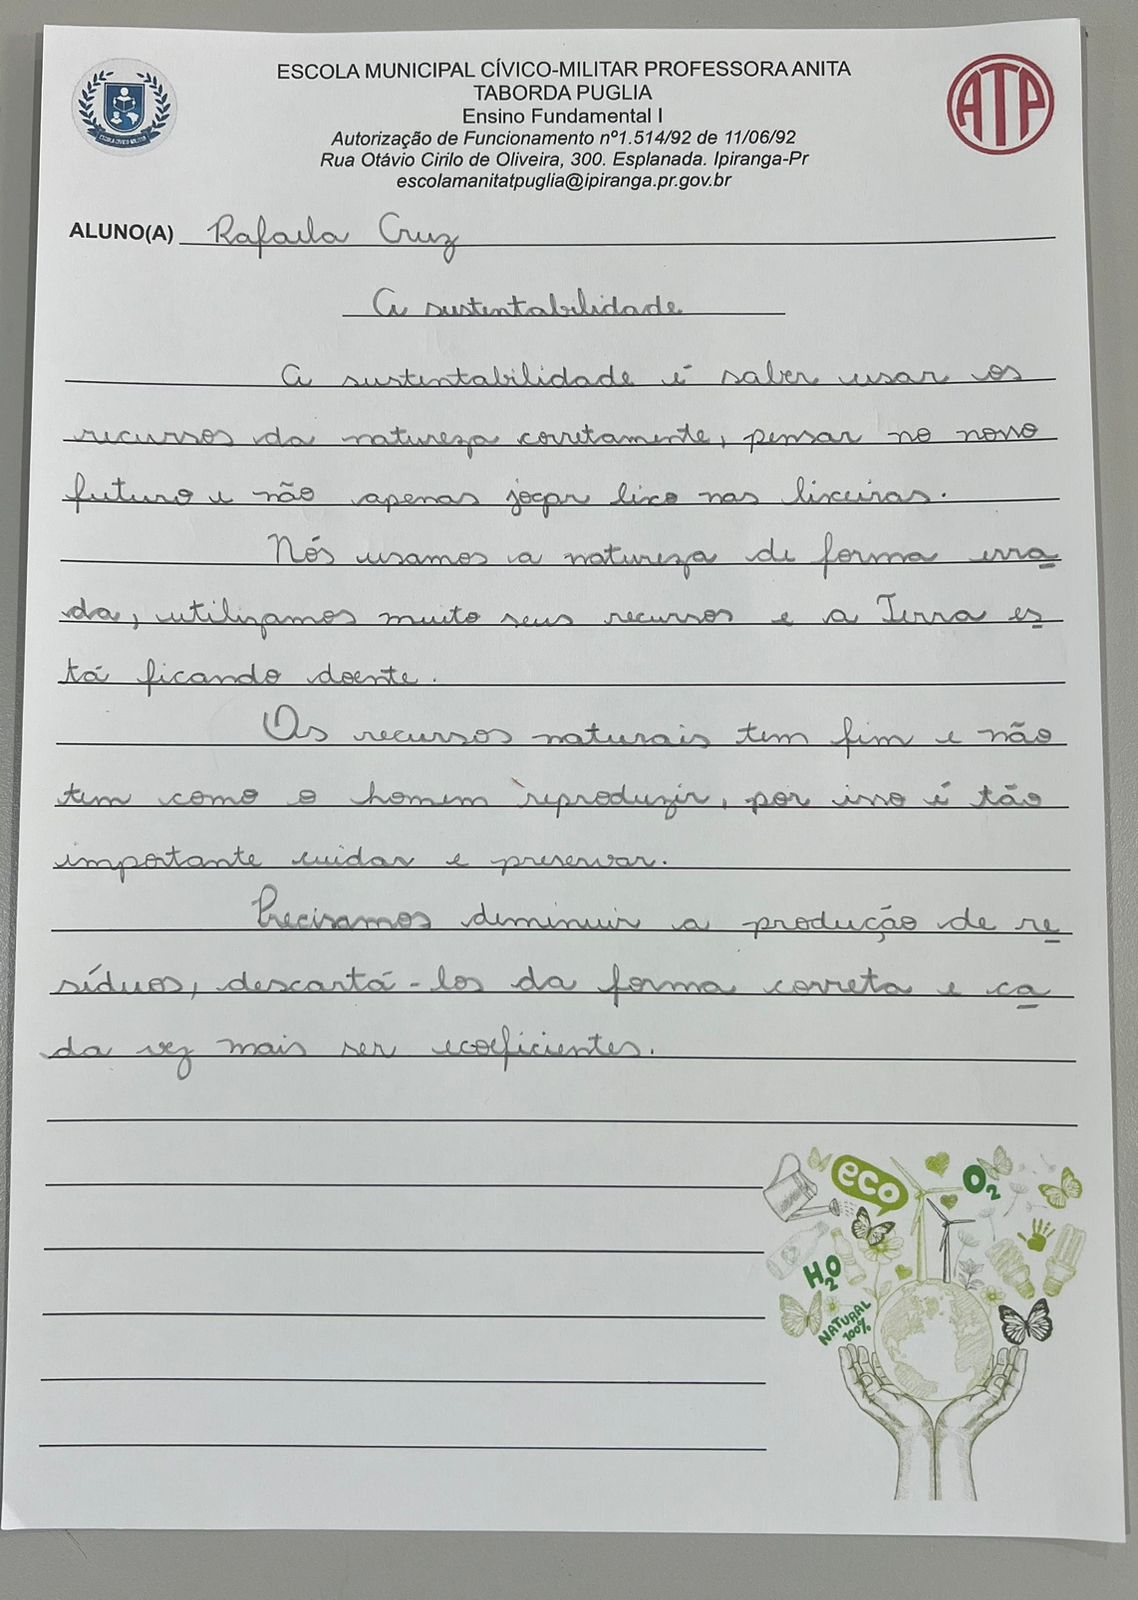 ESCOLA MUNICIPAL CÍVICO-MILITAR PROFESSORA ANITA
TABORDA PUGLIA
Ensino Fundamental I
Autorização de Funcionamento nº1.514/92 de 11/06/92
Rua Otávio Cirilo de Oliveira, 300. Esplanada. Ipiranga-Pr
escolamanitatpuglia@ipiranga.pr.gov.br
ESCOLA CÍVICO-MILITAR
ATP
ALUNO(A) Rafaela Cruz
A sustentabilidade
A sustentabilidade é saber usar os
recursos da natureza corretamente, pensar no nosso
futuro e não apenas jogar lixo nas lixeiras.
Nós usamos a natureza de forma erra
da, utilizamos muito seus recursos e a Terra es
tá ficando doente.
Os recursos naturais tem fim e não
tem como o homem reproduzir, por isso é tão
importante cuidar e preservar.
Precisamos diminuir a produção de re
síduos, descartá-los da forma correta e ca
da vez mais ser ecoeficientes.
eco
O2
H2O
NATURAL
100%